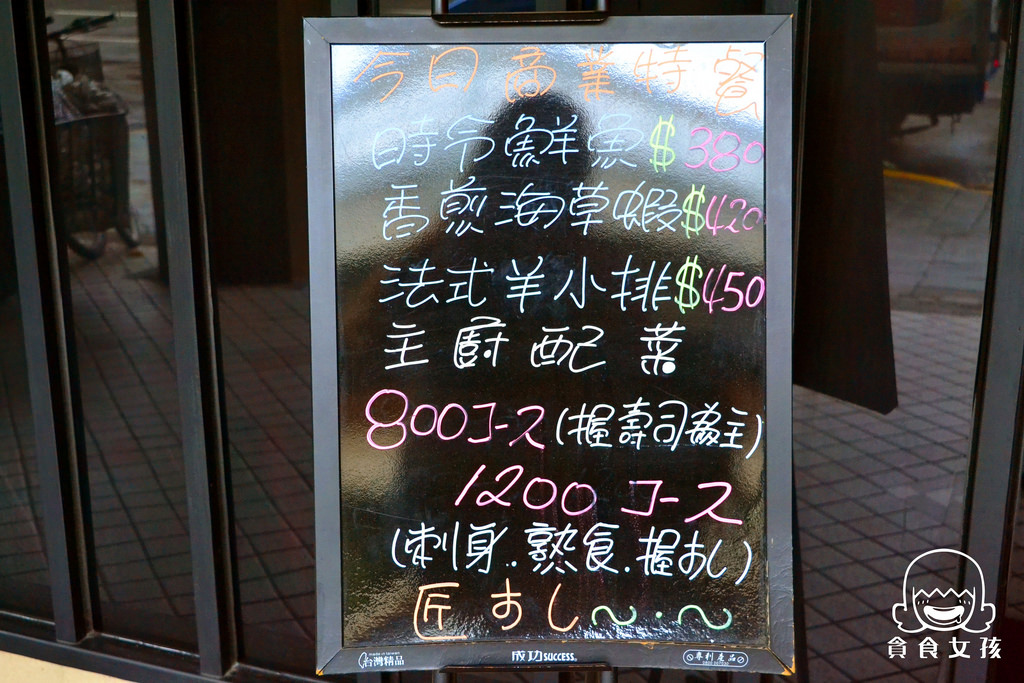 今日商業特餐
時令鮮魚$380
香煎海草蝦$420
法式羊小排$450
主廚配菜
800コース(握壽司為主)
1200コース
(刺身..熟食.握おし)
匠すし~.~
台灣精品
成功SUCCESS
專利產品
貪食女孩